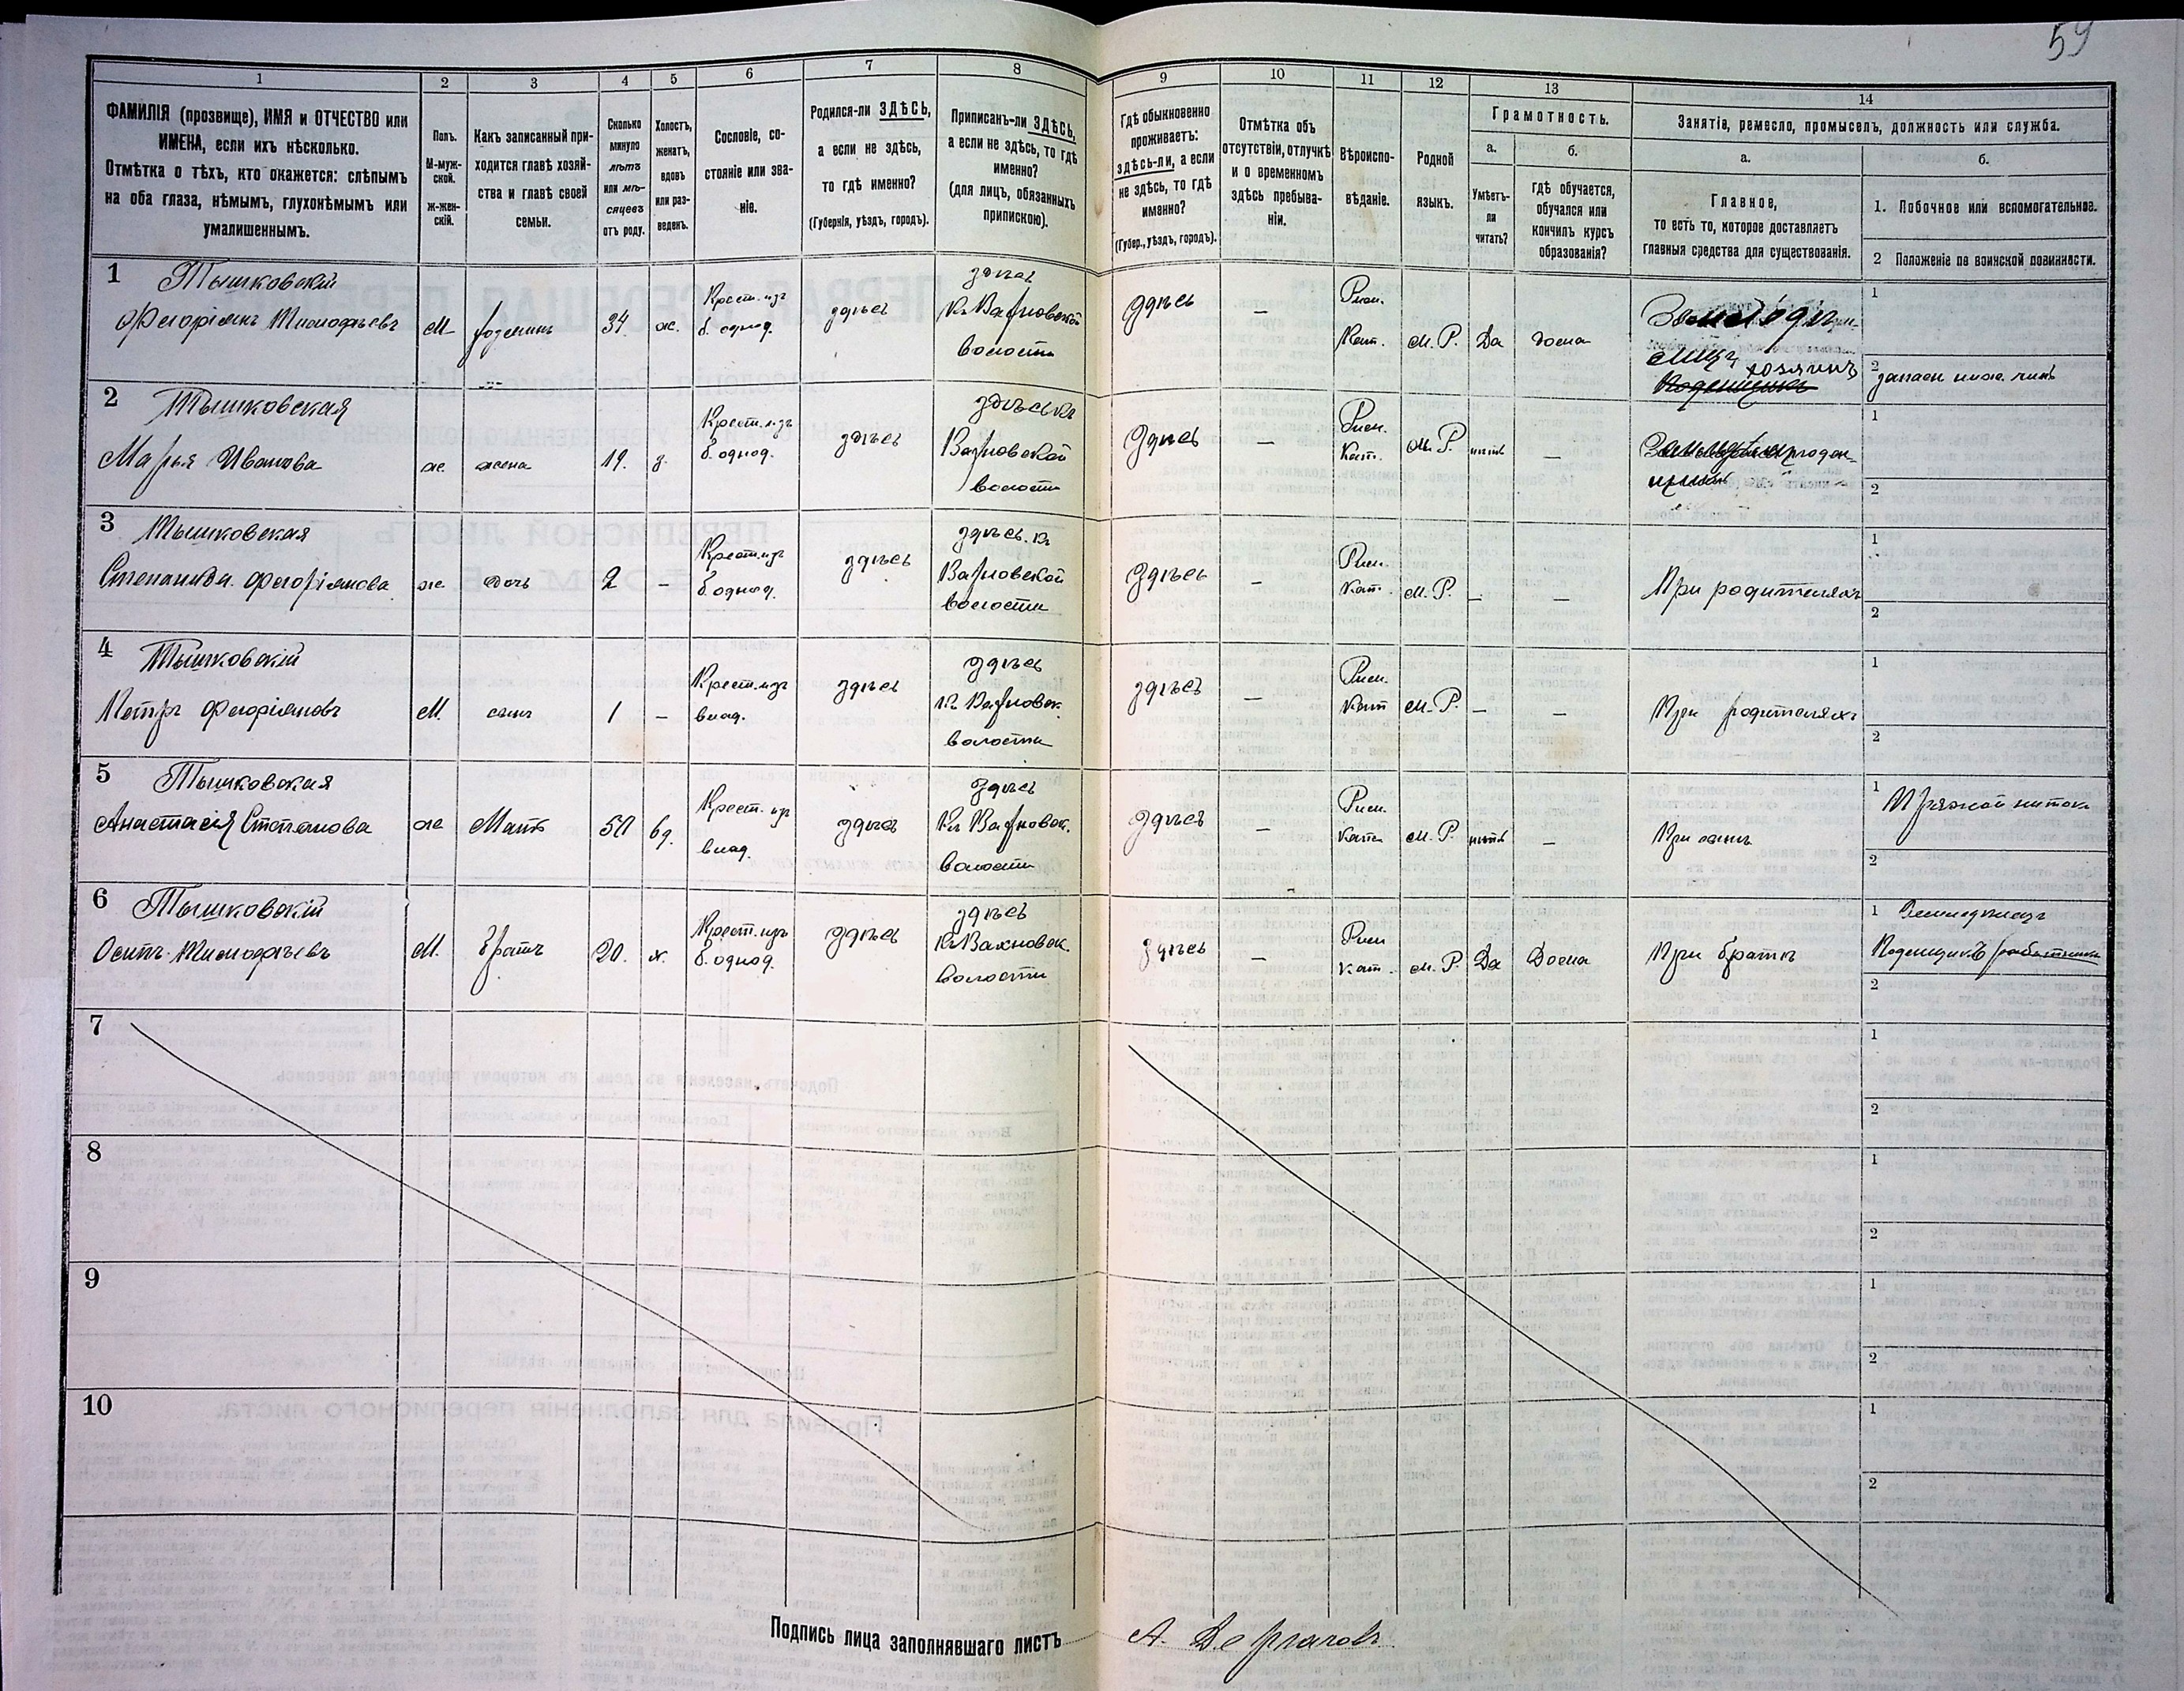 59
1 2 3 4 5 6 7 8 9 10 11 12 13 14
ФАМИЛІЯ (прозвище), ИМЯ и ОТЧЕСТВО или
ИМЕНА, если ихъ нѣсколько.
Отмѣтка о тѣхъ, кто окажется: слѣпымъ
на оба глаза, нѣмымъ, глухонѣмымъ или
умалишеннымъ.
Полъ.
М-муж-
ской.
ж-жен-
скій.
Какъ записанный при-
ходится главѣ хозяй-
ства и главѣ своей
семьи.
Сколько
минуло
лѣтъ
или мѣ-
сяцевъ
отъ роду.
Холостъ,
женатъ,
вдовъ
или раз-
веденъ.
Сословіе, со-
стояніе или зва-
ніе.
Родился-ли ЗДѢСЬ,
а если не здѣсь,
то гдѣ именно?
(Губернія, уѣздъ, городъ).
Приписанъ-ли ЗДѢСЬ,
а если не здѣсь, то гдѣ
именно?
(для лицъ, обязанныхъ
припискою).
Гдѣ обыкновенно
проживаетъ:
здѣсь-ли, а если
не здѣсь, то гдѣ
именно?
(Губер., уѣздъ, городъ).
Отмѣтка объ
отсутствіи, отлучкѣ
и о временномъ
здѣсь пребыва-
ніи.
Вѣроиспо-
вѣданіе.
Родной
языкъ.
Грамотность.
а.
Умѣетъ-
ли
читать?
б.
гдѣ обучается,
обучался или
кончилъ курсъ
образованія?
Занятіе, ремесло, промыселъ, должность или служба.
а.
Главное,
то есть то, которое доставляетъ
главныя средства для существованія.
б.
1. Побочное или вспомогательное.
2 Положеніе по воинской повинности.
1 Тышковскій
Флоріянъ Тимофѣевъ
М
хозяинъ
34
ж.
Крест. изъ
б. однод.
здѣсь
здѣсь
къ Вахновской
волости
здѣсь
—
Рим.
Кат.
М. Р.
Да
дома
хозяинъ
1
2 запасн. ниж. чинъ
2 Тышковская
Марья Иванова
ж.
жена
19.
з.
Крест. изъ
б. однод.
здѣсь
здѣсь къ
Вахновской
волости
Здѣсь
—
Рим.
Кат.
М. Р.
нѣтъ
—
1
2
3 Тышковская
Степанида Флоріянова
ж
дочь
2
—
Крест. изъ
б. однод.
здѣсь
здѣсь. къ
Вахновской
волости
Здѣсь
—
Рим.
Кат.
М. Р.
—
—
При родителяхъ
1
2
4 Тышковскій
Петръ Флоріяновъ
М.
сынъ
1
—
Крест. изъ
здѣсь
здѣсь
къ Вахновск.
волости
здѣсь
—
Рим.
Кат
М. Р.
—
—
При родителяхъ
1
2
5 Тышковская
Анастасія Степанова
ж
Мать
50
вд.
Крест. изъ
здѣсь
здѣсь
къ Вахновск.
волости
здѣсь
—
Рим.
Кат.
М. Р.
нѣтъ
—
При сынѣ
1 Пряжой нитокъ
2
6 Тышковскій
Осипъ Тимофѣевъ
М.
братъ
20.
х.
Крест. изъ
б. однод.
здѣсь
здѣсь
къ Вахновск.
волости
здѣсь
—
Рим
Кат.
М. Р.
Да
Дома
При братѣ
1
Поденщикъ работникъ
2
7
1
2
8
1
2
9
1
2
10
1
2
Подпись лица заполнявшаго листъ